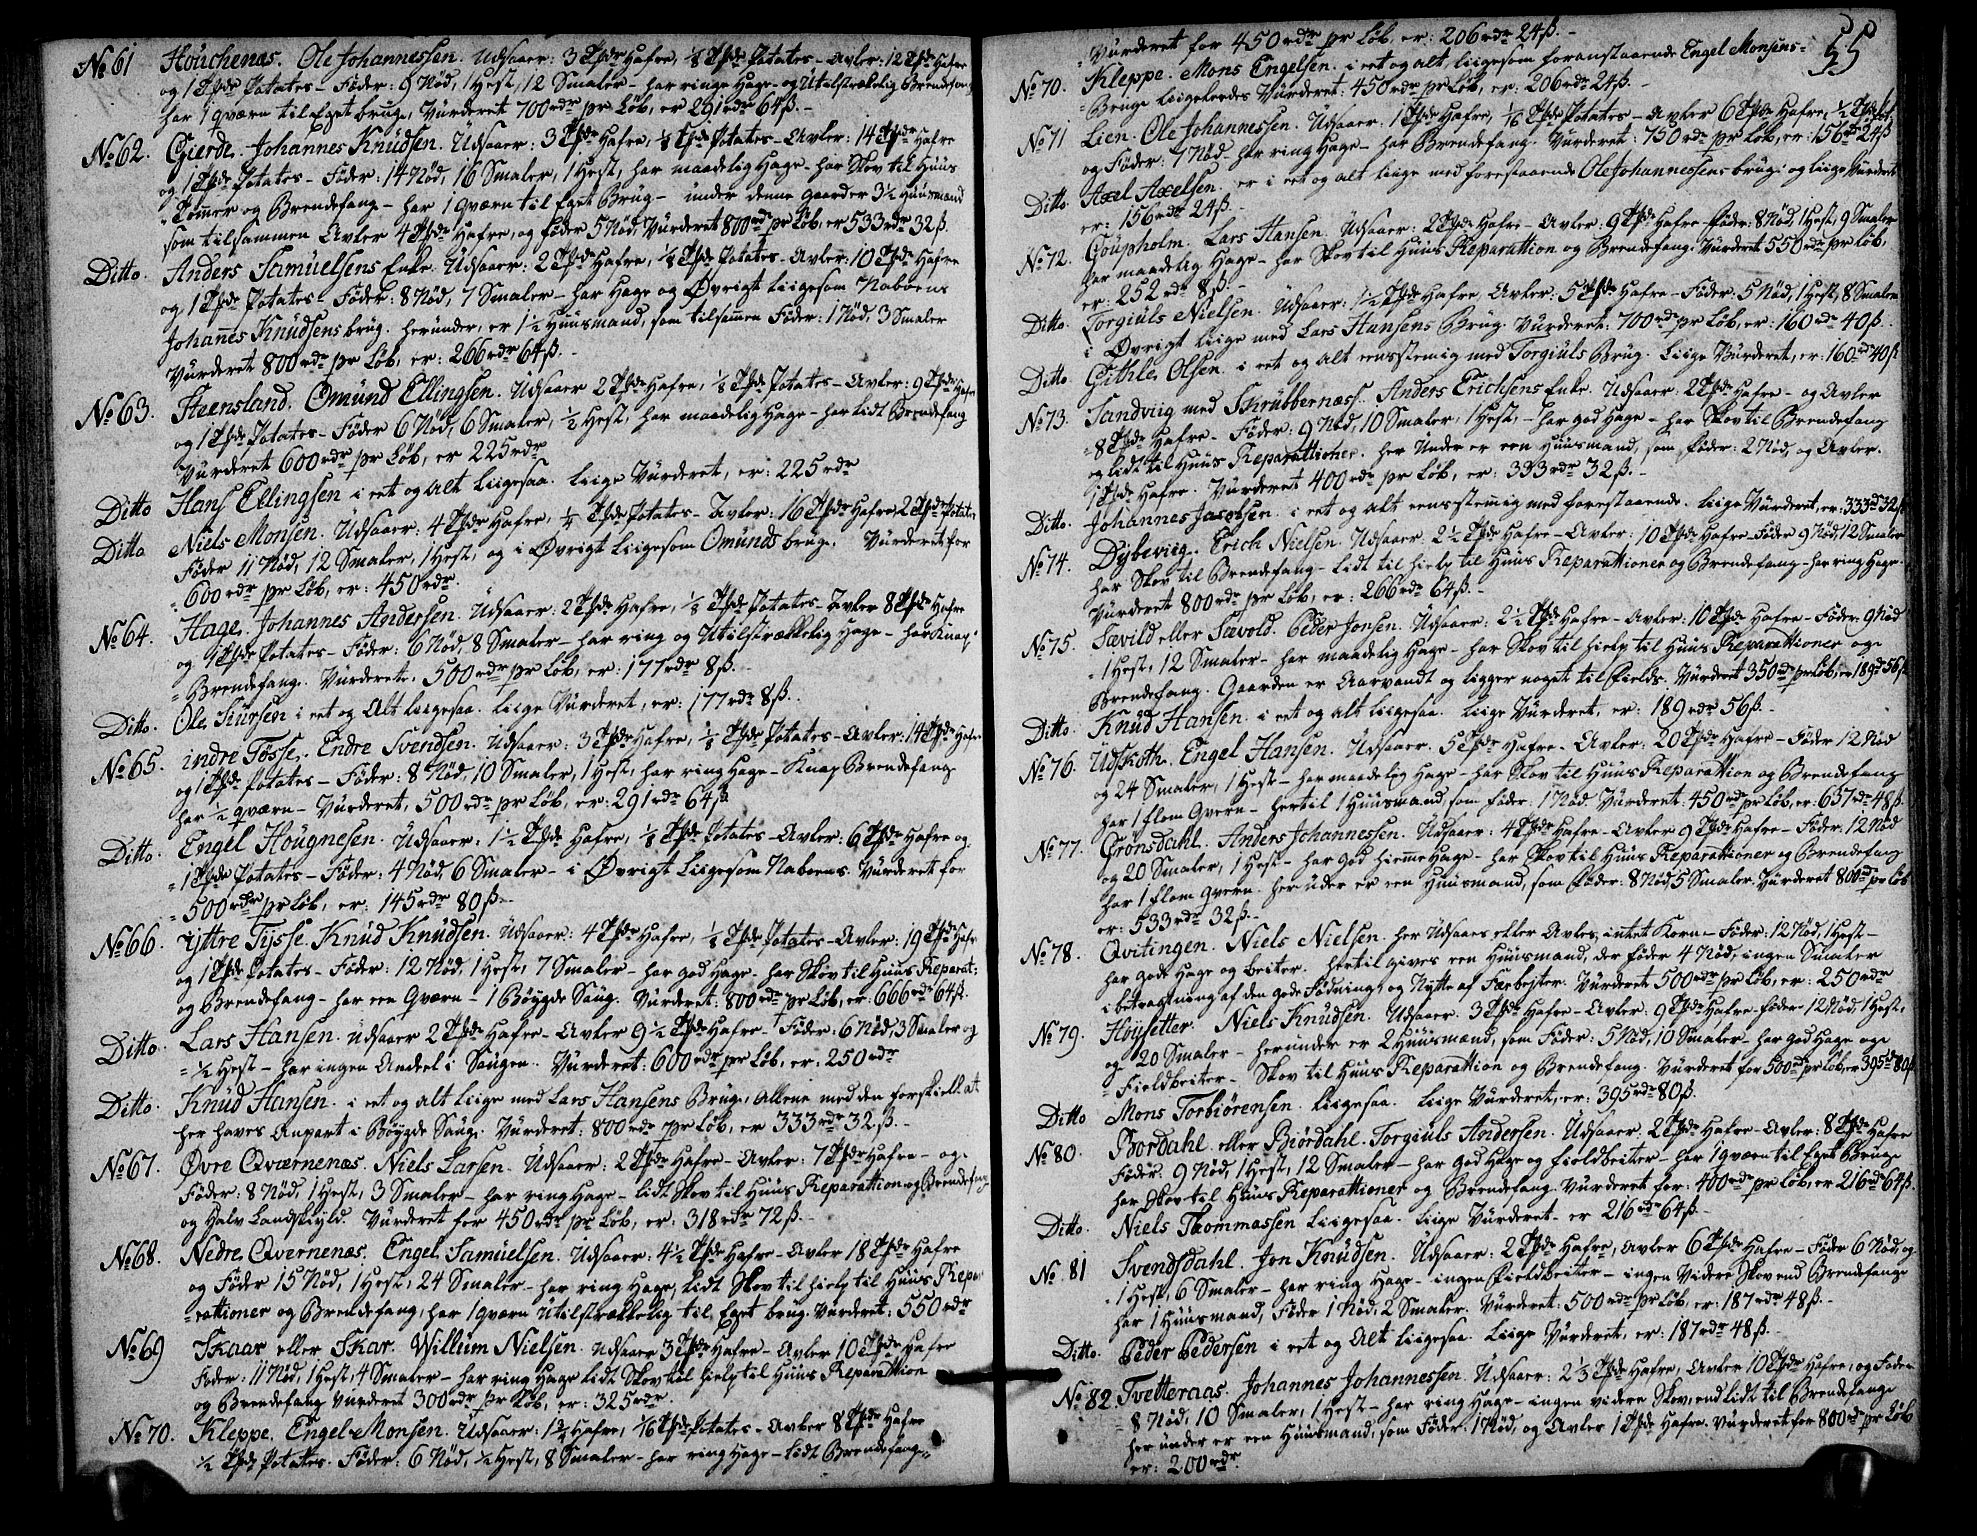 No 61 Houchenæs. Ole Johannessen. Udsaaer: 3 Tønder Hafre, 1/8 Tønde Potates – Avler: 12 Tdr Hafre
og 1 Tønde Potates – Føder: 9 Nød, 1 Hest, 12 Smaler – har ringe Hage – og Utilstrækkelig Brendefang
har 1 qværn til Eget brug, Vurderet 700 rdr pr Løb, er 291 rdr 64 ß.
No 62. Gierde. Johannes Knudsen. Udsaaer: 3 Tdr Hafre, 1/8 Tde Potates – Avler: 14 Tdr Hafre
og 1 Tde Potates – Føder: 14 Nød, 16 Smaler, 1 Hest, har maadelig Hage – har Skov til Huus
Tømer og Brendefang – har 1 qværn til Eget Brug – under denne gaard er 3 1/2 Huusmand
som tilsammen Avler 4 Tdr Hafre, og føder 5 Nød, Vurderet 800 rdr pr Løb, er 533 rdr 32 ß.
Ditto. Anders Samuelsens Enke. Udsaaer: 2 Tdr Hafre, 1/8 Tde Potates – Avler: 10 Tdr Hafre
og 1 Tde Potates – Føder: 8 Nød, 7 Smaler – har Hage og Øvrigt liigesom Naboens
Johanes Knudsens brug. herunder, er 1 1/2 Huusmand, som tilsamen Føder: 1 Nød, 3 Smaler
Vurderet 800 rdr pr Løb, er: 266 rdr 64 ß.
No 63. Steensland. Omund Ellingsen. Udsaaer 2 Tdr Hafre, 1/8 Tde Potates – Avler: 9 Tdr Hafre
og 1 Tde Potates – Føder 6 Nød, 6 Smaler, 1/2 Hest, har maadelig Hage – har lidt Brendefang
Vurderet 600 rdr pr Løb, er 225 rdr
Ditto Hans Ellingsen i eet og alt liigesaa. liige Vurderet, er: 225 rdr
Ditto Niels Monsen. Udsaaer: 4 Tdr Hafre, 1/4 Tde Potates – Avler: 16 Tdr Hafre, 2 Tdr Potates
Føder 11 Nød, 12 Smaler, 1 Hest, og i Øvrigt liigesom Omunds brug. Vurderet for
600 rdr pr Løb, er: 450 rdr.
No 64. Hage. Johannes Andersen. Udsaaer: 2 Tdr Hafre, 1/8 Tde Potates – Avler 8 Tdr Hafre
og 1 Tde Potates – Føder: 6 Nød, 8 Smaler – har ring og Utilstrækkelig Hage – har Knap
Brendefang. Vurderet: 500 rdr pr Løb, er: 177 rdr 8 ß.
Ditto. Ole Siursen i eet og Alt liigesaa. liige Vurderet, er: 177 rdr 8 ß.
No 65. indre Tøsse. Endre Svendsen. Udsaaer: 3 Tdr Hafre, 1/8 Tde Potates – Avler: 14 Tdr Hafre
og 1 Tde Potates – Føder: 8 Nød, 10 Smaler, 1 Hest, har ring Hage – Knap Brendefang
har 1/2 qværn – Vurderet, 500 rdr pr Løb, er: 291 rdr 64 ß
Ditto. Engel Hougnesen. Udsaaer: 1 1/2 Tde Hafre, 1/8 Tde Potates – Avler: 6 Tdr Hafre og
1 Tde Potates – Føder: 4 Nød, 6 Smaler – i Øvrigt liigesom Naboens. Vurderet for
500 rdr pr Løb, er: 145 rdr 80 ß.
No 66. ijttre Tijsse. Knud Knudsen. Udsaaer: 4 Tdr Hafre, 1/8 Tde Potates – Avler: 19 Tdr Hafre
og 1 Tde Potates – Føder: 12 Nød, 1 Hest, 7 Smaler – har god Hage – har Skov til Huus Reparat:
og Brendefang – har een Qværn – 1 Bøygde Saug. Vurderet: 800 rdr pr Løb, er: 666 rdr 64 ß.
Ditto. Lars Hansen. Udsaaer 2 Tdr Hafre – Avler 9 1/2 Tdr Hafre – Føder: 6 Nød, 3 Smaler og
1/2 Hest – har ingen Andeel i Saugen. Vurderet: 600 rdr pr Løb, er: 250 rdr
Ditto. Knud Hansen. i eet og alt liige med Lars Hansens Brug, Allene med den forskiell at
her haves Anpart i Bøygde Saug. Vurderet: 800 rdr pr Løb, er 333 rdr 32 ß.
No 67. Øvre Qværnenæs. Niels Larsen. Udsaaer: 2 Tdr Hafre – Avler: 7 Tdr Hafre – og
Føder: 8 Nød, 1 Hest, 3 Smaler – har ring Hage – lidt Skov til Huus Reparattion og Brendefang
og Halv Landskyld. Vurderet for 450 rdr pr Løb, er: 318 rdr 72 ß.
No 68. Nedre Qvernenæs. Engel Samuelsen. Udsaaer: 4 1/2 Tdr Hafre – Avler 18 Tdr Hafre
og Føder 15 Nød, 1 Hest, 24 Smaler – har ring Hage, lidt Skov til hielp til Huus Repar
rattioner og Brendefang, har 1 qværn utilstrækkelig til Eget brug. Vurderet: 550 rdr
No 69 Skaar eller Skar. Willum Nielsen. Udsaaer 3 Tdr Hafre – Avler 10 Tdr Hafre
Føder: 11 Nød, 1 Hest, 4 Smaler – har ring Hage lidt Skov til hielp til Huus Reparattion
og Brendefang Vurderet 300 rdr pr Løb, er: 325 rdr.
No 70. Kleppe. Engel Monsen. Udsaaer: 1 3/4 Hafre, 1/16 Tde Potates – Avler 8 Tdr Hafre
1/2 Tde Potates. Føder: 6 Nød, 1/2 Hest, 8 Smaler – har ring Hage – lidt Brendefang
55
Vurderet for 450 rdr pr Løb er: 206 rdr 24 ß.
No 70. Kleppe. Mons Engelsen. i eet og alt liigesom foranstaaende Engel Monsens
Brug liigeledes Vurderet: 450 rdr pr Løb, er: 206 rdr 24 ß.
No 71 Lien. Ole Johannessen. Udsaaer: 1 Tde Hafre, 1/16 Tde Potates – Avler 6 Tdr Hafre, 1/2 Tde Pot.
og Føder: 7 Nød – har ring Hage – har Brendefang. Vurderet: 750 rdr pr Løb, er: 156 rdr 24 ß
Ditto Axel Axelsen. er i eet og alt liige med forestaaende Ole Johannessens brug: og liige Vurderet
er: 156 rdr 24 ß.
No 72. Goupholm. Lars Hansen. Udsaaer: 2 Tdr Hafre – Avler: 9 Tdr Hafre – Føder: 8 Nød, 1 Hest, 9 Smaler
har maadelig Hage – har Skov til Huus Reparattion og Brendefang. Vurderet 550 rdr pr Løb,
er: 252 rdr 8 ß.
Ditto. Torgiuls Nielsen. Udsaaer: 1 1/2 Tde Hafre, Avler: 5 Tdr Hafre – Føder: 5 Nød, 1 Hest, 8 Smaler
i Øvrigt liige med Lars Hansens Brug. Vurderet: 700 rdr pr Løb, er: 160 rdr 40 ß.
Ditto Githle Olsen. i eet og alt eensstemig med Torgiuls Brug. liige Vurderet, er: 160 rdr 40 ß
No 73. Sandviig med Skrubbernæs. Anders Erichsens Enke. Udsaaer: 2 Tdr Hafre – og Avler
8 Tdr Hafre – Føder: 9 Nød, 10 Smaler, 1 Hest, – har god Hage – har Skov til Brendefang
og lidt til Huus Reparattioner. her Under er een Huusmand, som føder: 2 Nød, og Avler.
1 Tde Hafre. Vurderet 400 rdr pr Løb, er: 333 rdr 32 ß.
Ditto. Johannes Jacobsen. i eet og alt eensstemig med forestaaende. liige Vurderet, er: 333 rdr 32 ß
No 74. Dybeviig. Erich Nielsen. Udsaaer: 2 1/2 Tdr Hafre – Avler: 10 Tdr Hafre – Føder 9 Nød, 12 Smaler
har Skov til Brendefang – lidt til hielp til Huus Reparattioner og Brendefang – har ring Hage
Vurderet 800 rdr pr Løb, er: 266 rdr 64 ß.
No 75. Sævild eller Sævold. Peder Jonsen. Udsaaer: 2 1/2 Tdr Hafre – Avler: 10 Tdr Hafre – Føder: 9 Nød
1 Hest, 12 Smaler – har maadelig Hage – har Skov til hielp til Huus Reparattioner og
Brendefang. Gaarden er Aarvandt og ligger noget til Fields. Vurderet 350 rdr pr Løb, er 189 rdr 56 ß
Ditto. Knud Hansen. i eet og alt liigesaa. liige Vurderet, er: 189 rdr 56 ß.
No 76. Udskoth. Engel Hansen. Udsaaer: 5 Tdr Hafre – Avler: 20 Tdr Hafre – Føder 12 Nød
og 24 Smaler, 1 Hest – har maadelig Hage – har Skov til Huus Reparattion og Brendefang
har 1 flom Qvern – hertil 1 Huusmand, som føder: 1 Nød. Vurderet 450 rdr pr Løb, er: 657 rdr 48 ß.
No 77. Grønsdahl. Anders Johannessen. Udsaaer: 4 Tdr Hafre – Avler 9 Tdr Hafre – Føder: 12 Nød
og 20 Smaler, 1 Hest – har god hieme Hage – har Skov til Huus Reparattioner og Brendefang
har 1 flom Qvern. her uder er een Huusmand, som føder: 8 Nød 5 Smaler. Vurderet 800 rdr pr Løb
er: 533 rdr 32 ß.
No 78. Qvitingen. Niels Nielsen. her Udsaaes eller Avles intet Korn – Føder: 12 Nød, 1 Hest –
har gode Hage og beiter. hertil gives een Huusmand, der føder 4 Nød, ingen Smaler
i betragtning af den gode Fødning, og Nytte af Færbester. Vurderet 500 rdr pr Løb, er: 250 rdr
No 79. Høysetter. Niels Knudsen. Udsaaer: 3 Tdr Hafre – Avler: 9 Tdr Hafre – føder 12 Nød, 1 Hest,
og 20 Smaler – herunder er 2 Huusmænd, som Føder: 5 Nød, 10 Smaler – har god Hage og
Fieldbeiter – Skov til Huus Reparattion og Brendefang. Vurderet for 500 rdr pr Løb, er 395 rdr 80 ß.
Ditto Mons Torbiörensen. liigesaa. liige Vurderet, er: 395 rdr 80 ß.
No 80. Bordahl eller Biördahl. Torgiuls Andersen. Udsaaer: 2 Tdr Hafre – Avler: 8 Tdr Hafre
Føder: 9 Nød, 1 Hest, 12 Smaler – har god Hage og fieldbeiter – har 1 qværn til Eget Bruge
har Skov til Huus Reparattioner og Brendefang. Vurderet for: 400 rdr pr Løb, er 216 rdr 64 ß.
Ditto. Niels Thommassen liigesaa. liige Vurderet – er 216 rdr 64 ß.
No. 81 Svendsdahl. Jon Knudsen. Udsaaer: 2 Tdr Hafre, Avler 6 Tdr Hafre – Føder 6 Nød, og
1 Hest, 6 Smaler – har ring Hage – ingen Fieldbeiter – ingen Videre Skov end Brendefang
har 1 Huusmand, Føder 1 Nød 2 Smaler. Vurderet: 500 rdr pr Løb, er: 187 rdr 48 ß.
Ditto. Peder Pedersen i eet og Alt liigesaa. liige Vurderet, er: 187 rdr 48 ß.
No 82. Tvetteraas. Johannes Johannessen. Udsaaer: 2 1/2 Tdr Hafre, Avler 10 Tdr Hafre, og Føder
8 Nød, 10 Smaler, 1 Hest – har ring Hage – ingen videre Skov, end lidt til Brendefang
her under er een Huusmand, som Føder: 1 Nød, og Avler 1 Tde Hafre. Vurderet for 800 rdr pr Løb
er: 200 rdr.